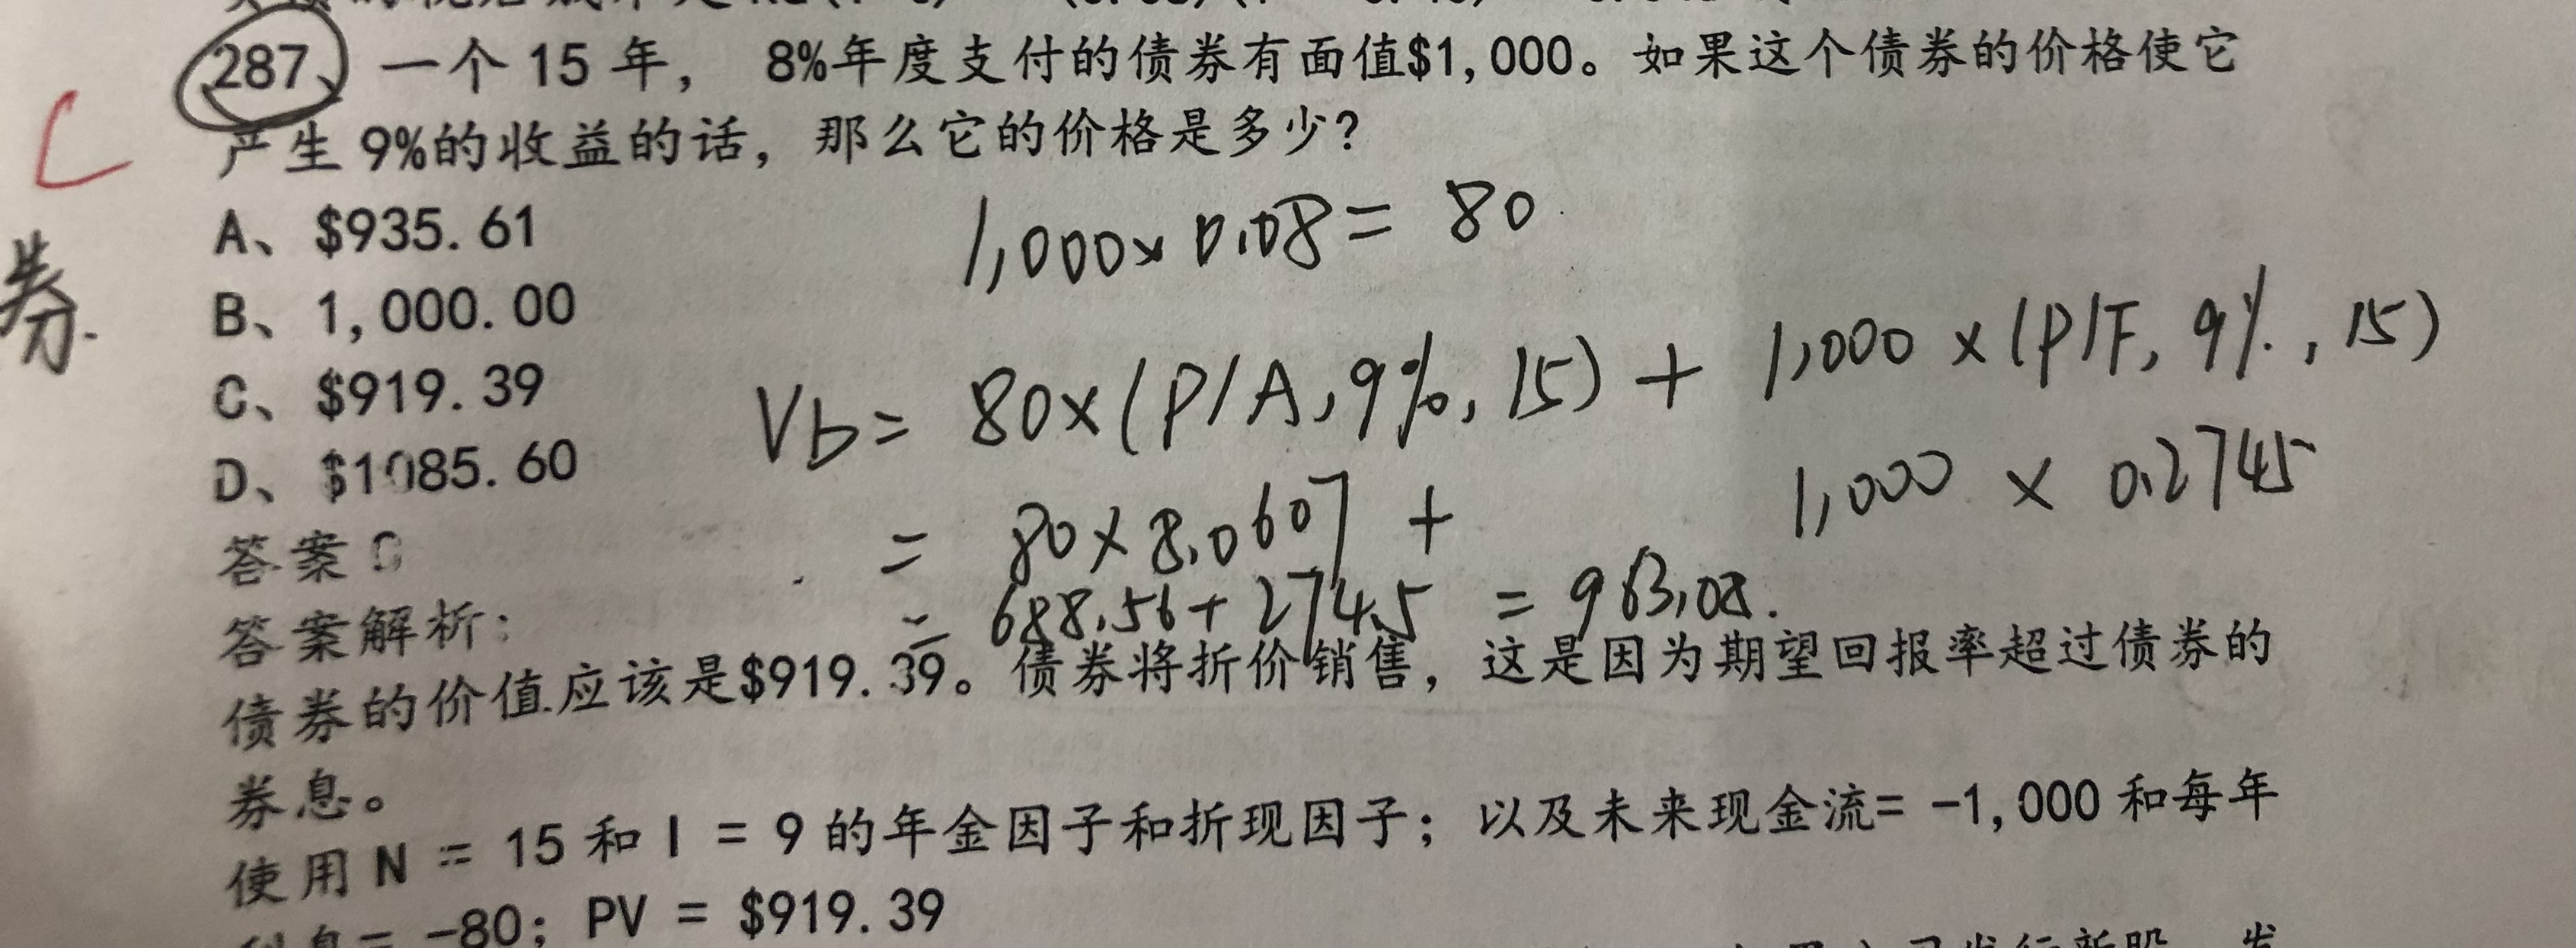 287、一个 15 年， 8%年度支付的债券有面值$1,000。如果这个债券的价格使它
产生 9%的收益的话，那么它的价格是多少？
C
券.
A、$935.61
B、1,000.00
C、$919.39
D、$1085.60
1,000×0.08= 80
Vb= 80×(P/A,9%,15) + 1,000×(P/F,9%,15)
= 80×8.0607 + 1,000 × 0.2745
= 688.56+274.5 = 963.08.
答案 C
答案解析：
债券的价值应该是$919.39。债券将折价销售，这是因为期望回报率超过债券的
券息。
使用 N = 15 和 I = 9 的年金因子和折现因子；以及未来现金流= -1,000 和每年
利息= -80; PV = $919.39